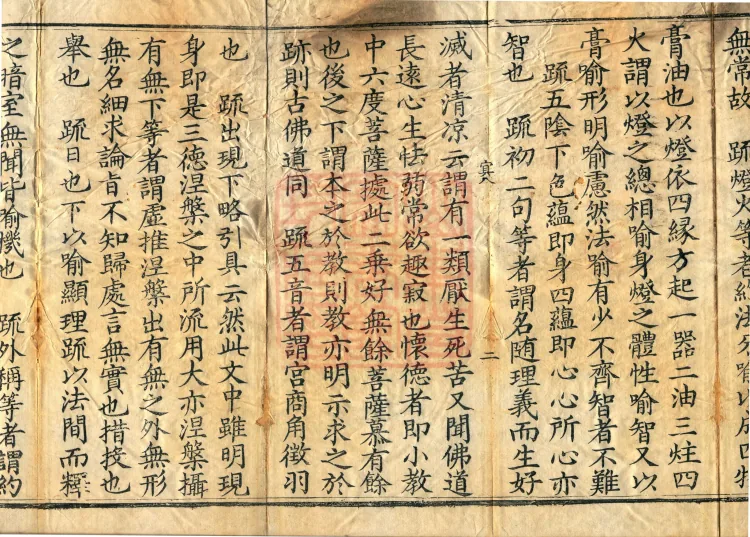 無常故 䟽燈火等者經
膏油也以燈依四縁方起一器二油三炷四
火謂以燈之緫相喻身燈之體性喻智又以
膏喻形明喻慮然法喻有少不齊智者不難
䟽五陰下色蘊即身四蘊即心心所心亦
智也 䟽初二句等者謂名随理義而生好
二
滅者清凉云謂有一類厭生死苦又聞佛道
長遠心生怯弱常欲趣寂也懷德者即小教
中六度菩薩據此二乗好無餘菩薩慕有餘
也後之下謂本之於教則教亦明示求之於
跡則古佛道同 䟽五音者謂宮商角徵羽
也 䟽出現下略引具云然此文中雖明現
身即是三德涅槃之中所流用大亦涅槃攝
有無下等者謂虛推涅槃出有無之外無形
無名細求論㫖不知歸處言無實也措按也
舉也 䟽日也下以喻顯理䟽以法間而釋
之暗室無聞皆喻機也 䟽外稱等者謂約